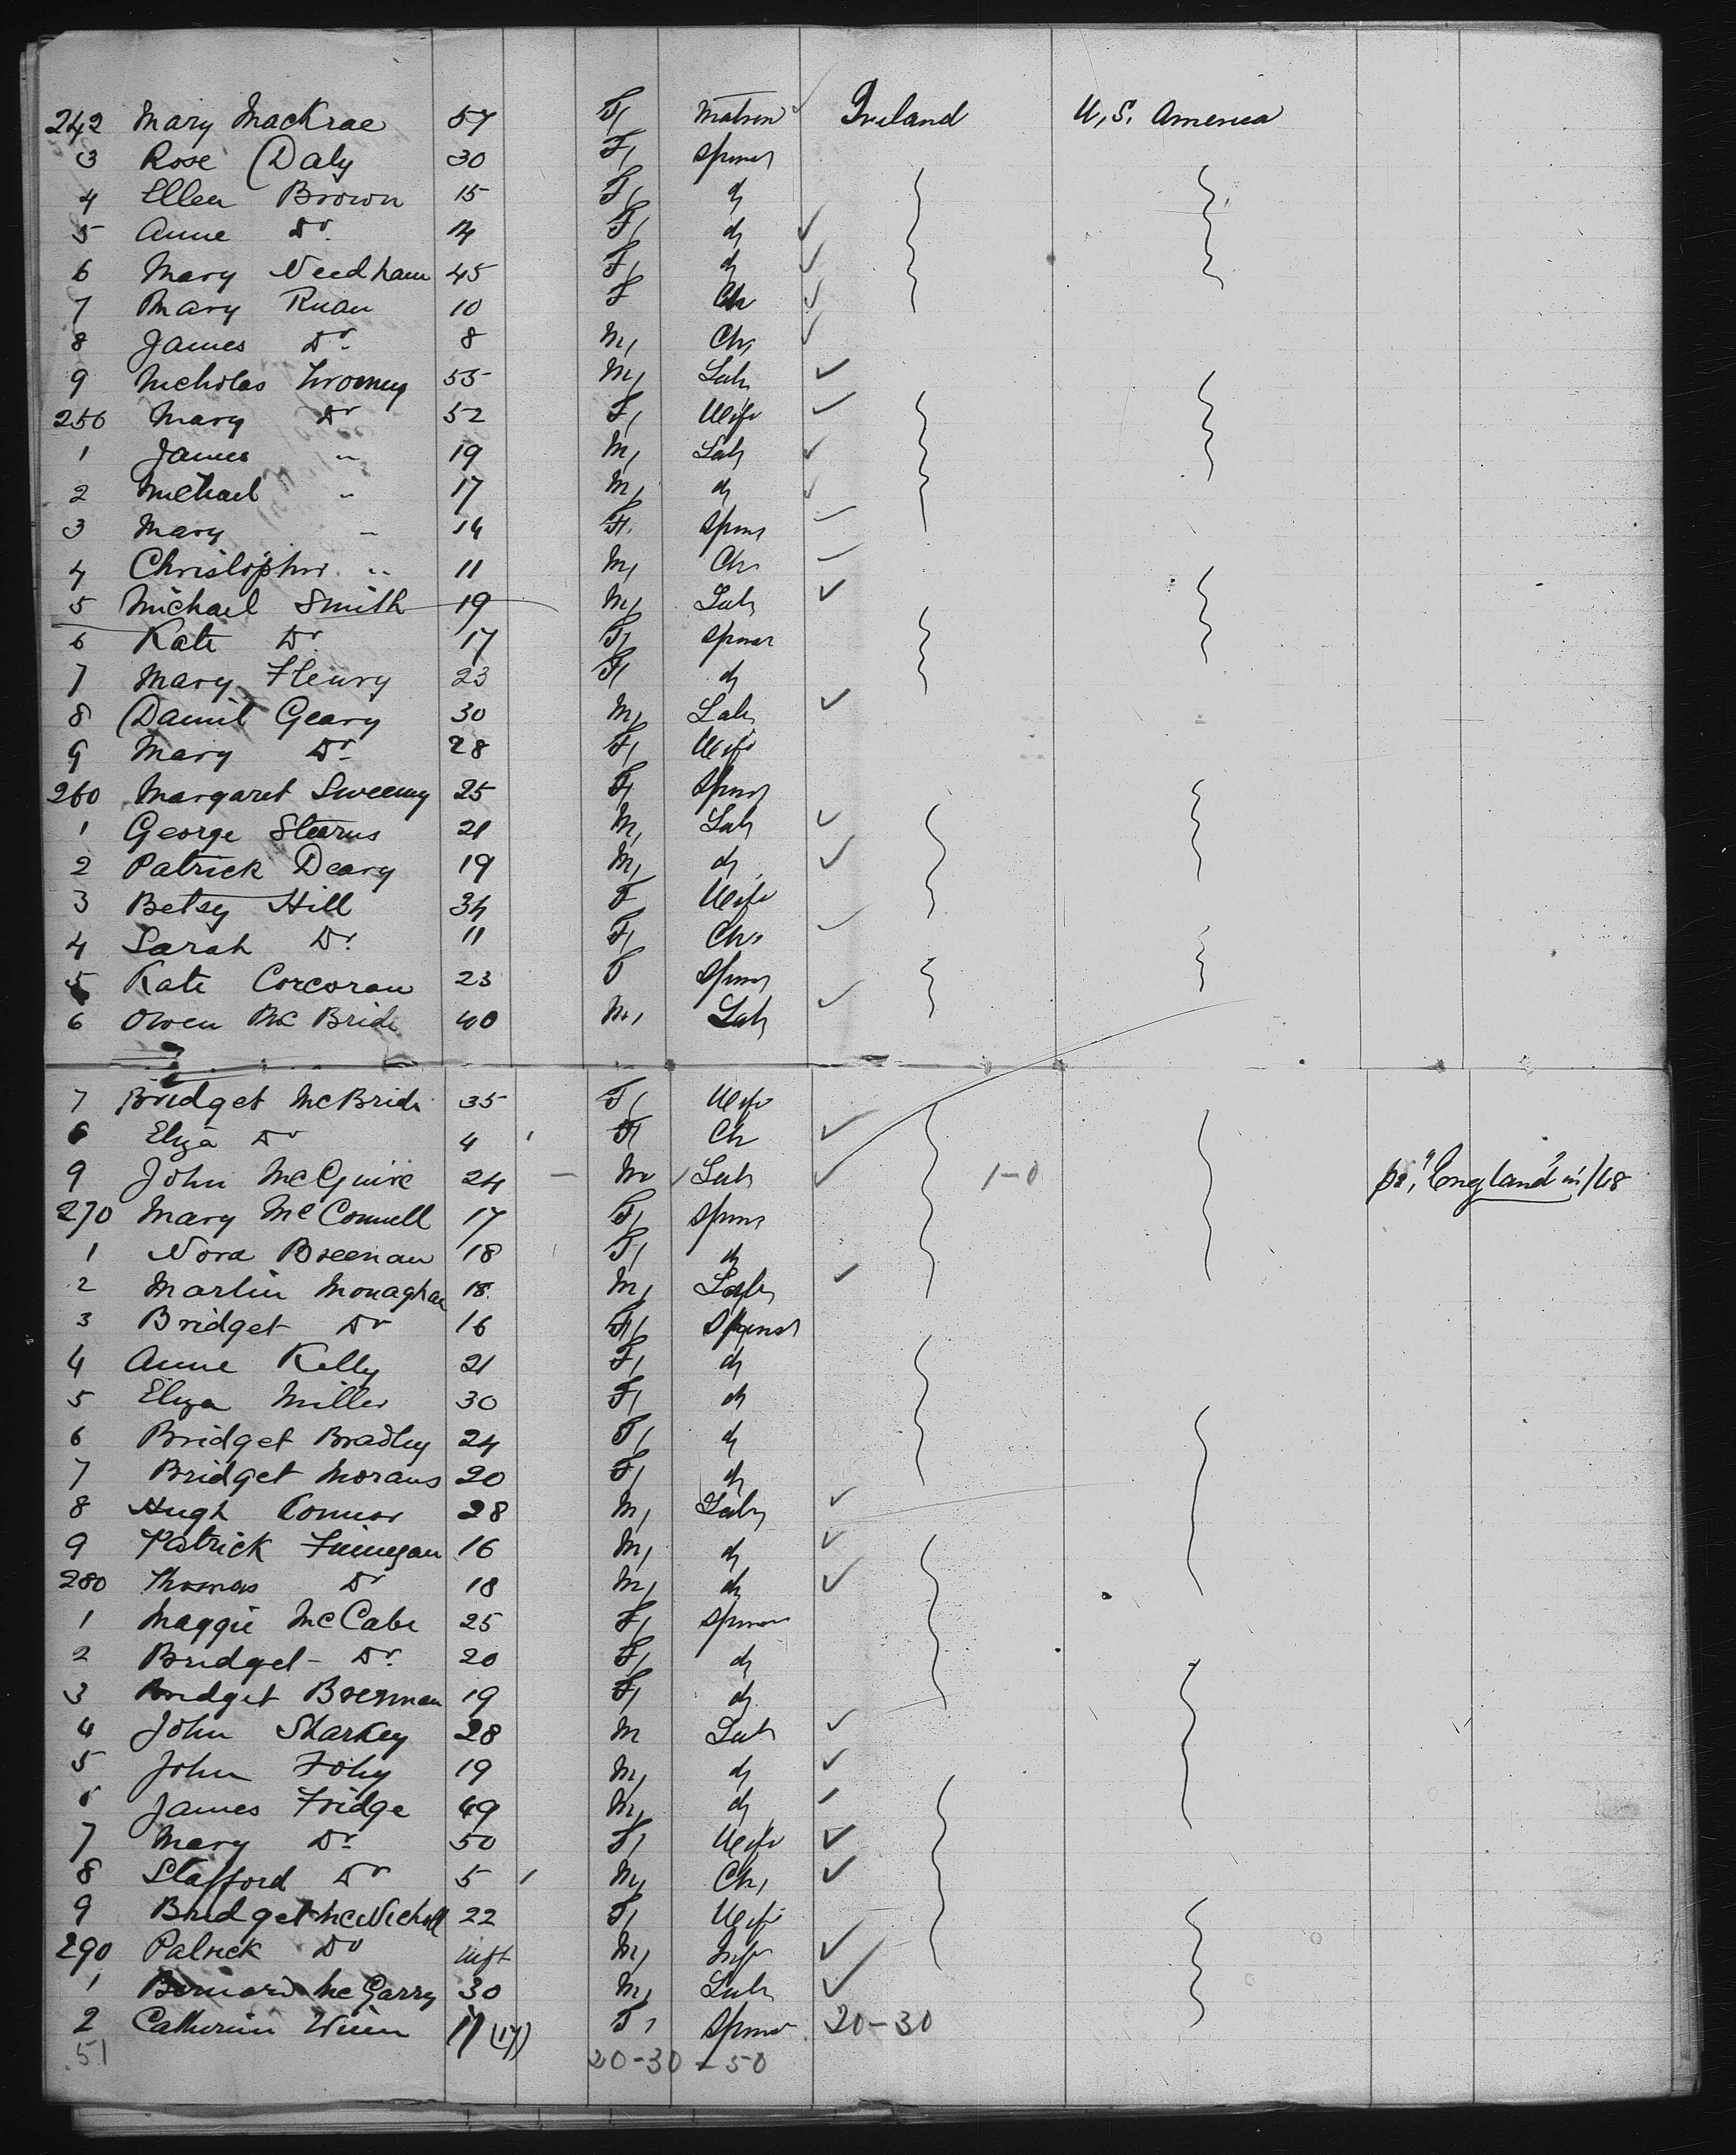 242 Mary MacKrae 57 F, Matron Ireland U, S. America
3 Rose Daly 30 F, Spinst
4 Ellen Brown 15 F, d,
5 Anne Do. 14 F, d,
6 Mary Needham 45 F, d,
7 Mary Ruan 10 F Ch
8 James Do. 8 M, Ch,
9 Nicholas 55 M, Lab,
250 Mary Do 52 F, Wife
1 James " 19 M, Lab,
2 Michael " 17 M, d,
3 Mary " 14 F, Spins
4 Christopher " 11 M, Ch.
5 Michael Smith 19 M, Lab,
6 Kate Do. 17 F, Spinst
7 Mary Fleury 23 F, d,
8 Daniel Geary 30 M, Lab,
9 Mary Do. 28 F, Wife
260 Margaret Sweeney 25 F, Spins
1 George Stearns 21 M, Lab,
2 Patrick Deary 19 M, d,
3 Betsy Hill 34 F Wife
4 Sarah Do. 11 F, Ch.
5 Kate Corcoran 23 F Spins
6 Owen McBride 40 M, Lab,
7 Bridget McBride 35 F, Wife
8 Eliza Do 4 F, Ch
9 John McGuire 24 M Lab 1-0 "England" in /68
270 Mary McConnell 17 F, Spins
1 Nora Breenan 18 F, d,
2 Martin Monaghan 18 M, Lab,
3 Bridget Do 16 F, Spinst
4 Anne Kelly 21 F, d,
5 Eliza Miller 30 F, d,
6 Bridget Bradley 24 F, d,
7 Bridget Morans 20 F, d,
8 Hugh Connor 28 M, Lab,
9 Patrick Finnegan 16 M, d,
280 Thomas Do 18 M, d,
1 Maggie McCabe 25 F, Spins
2 Bridget Do. 20 F, d,
3 Bridget Brennan 19 F, d,
4 John Sharkey 28 M Lab
5 John Foley 19 M, d,
6 James Fridge 49 M, d,
7 Mary Do. 50 F, Wife
8 Stafford Do 5 M, Ch,
9 Bridget McNicholl 22 F, Wife
290 Patrick Do inft M, Inf
1 Bernard McGarry 30 M, Lab,
2 Catherine Winn 17 (17) F, Spins 20-30
51 20-30-50